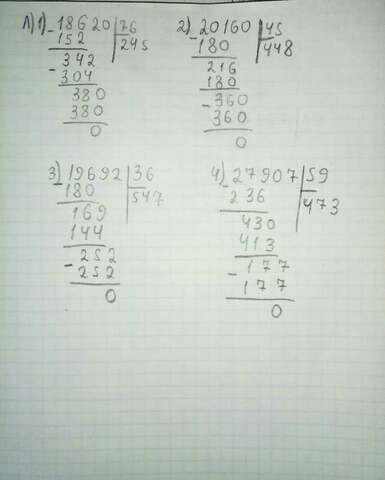 Л)1) - 18620 | 76
152 | 245
342
- 304
380
380
0
2) - 20160 | 45
180 | 448
216
180
- 360
360
0
3) - 19692 | 36
180 | 547
169
144
- 252
252
0
4) - 27907 | 59
236 | 473
430
413
- 177
177
0